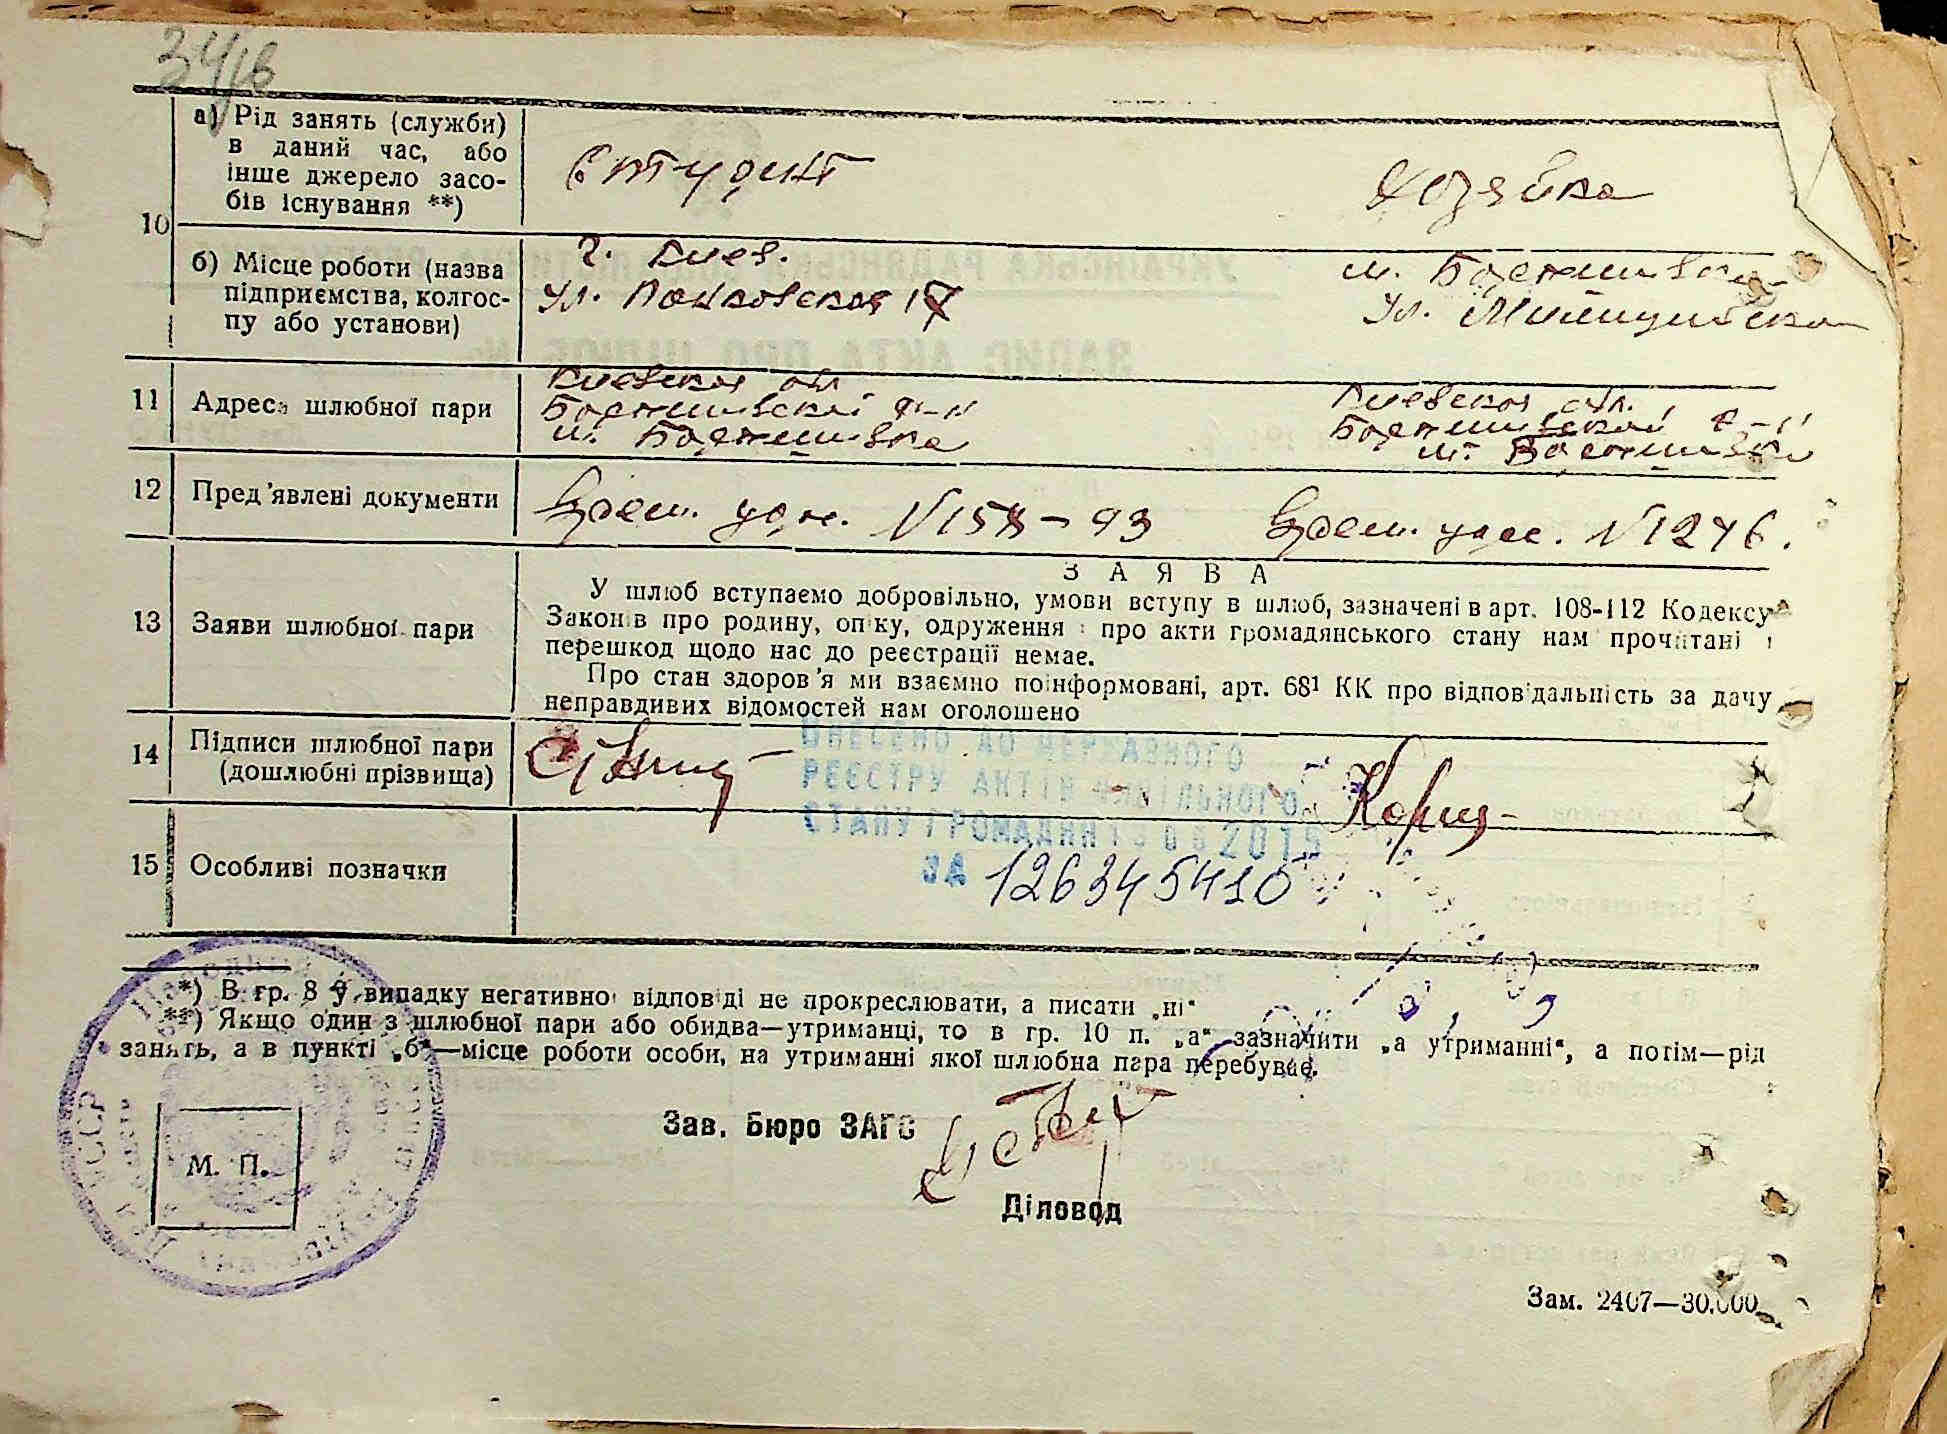 34/в
10
а) Рід занять (служби)
в даний час, або
інше джерело засо-
бів існування **)
Студент
Хозяйка
б) Місце роботи (назва
підприємства, колгос-
пу або установи)
г. Киев.
ул. Паньковская 17
м.
ул.
11
Адреса шлюбної пари
Киевская обл
м.
Киевская обл.
м.
12
Пред'явлені документи
Врем. удос. № 93
Врем. удос. № 1246.
13
Заяви шлюбної пари
ЗАЯВА
У шлюб вступаємо добровільно, умови вступу в шлюб, зазначені в арт. 108-112 Кодексу
Законів про родину, опіку, одруження і про акти громадянського стану нам прочитані і
перешкод щодо нас до реєстрації немає.
Про стан здоров'я ми взаємно поінформовані, арт. 68¹ КК про відповідальність за дачу
неправдивих відомостей нам оголошено
14
Підписи шлюбної пари
(дошлюбні прізвища)
ВНЕСЕНО ДО ДЕРЖАВНОГО
РЕЄСТРУ АКТІВ ЦИВІЛЬНОГО
СТАНУ ГРОМАДЯН 2015
ЗА 126345410
15
Особливі позначки
*) В гр. 8 у випадку негативної відповіді не прокреслювати, а писати „ні“
**) Якщо один з шлюбної пари або обидва—утриманці, то в гр. 10 п. „а“ зазначити „а утриманні“, а потім—рід
занять, а в пункті „б“—місце роботи особи, на утриманні якої шлюбна пара перебуває.
Зав. Бюро ЗАГС
М. П.
Діловод
Зам. 2407—30.000